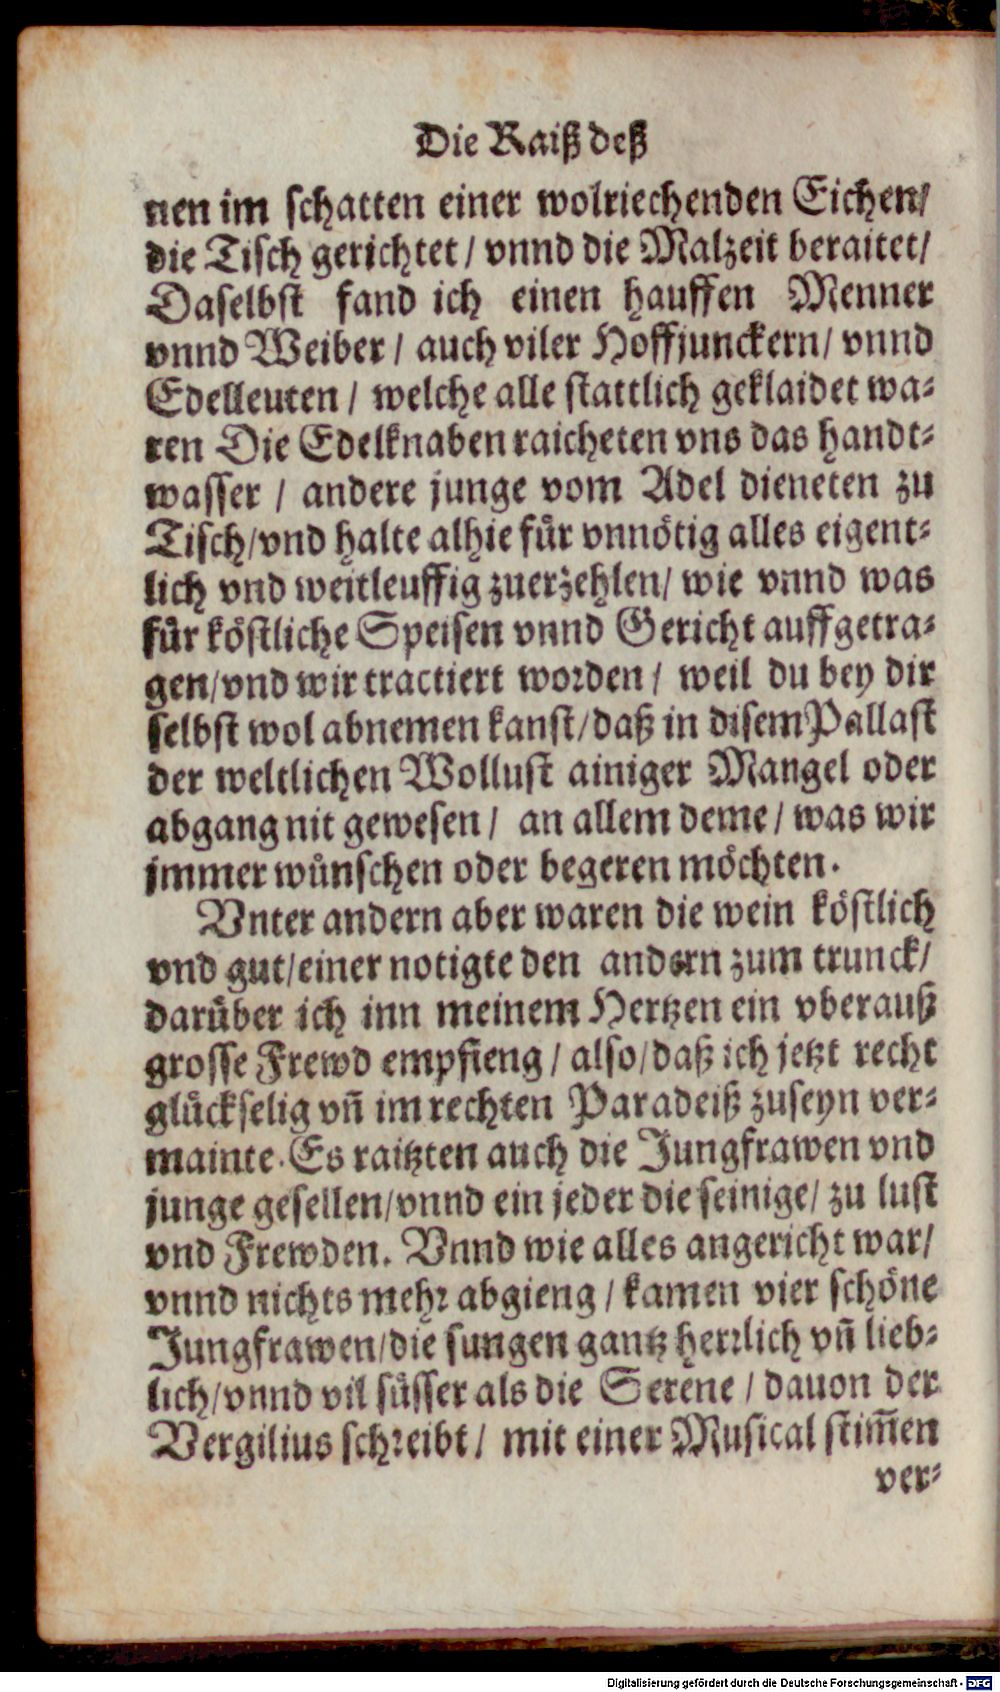 Die Raiß deß
nen im schatten einer wolriechenden Eichen/
die Tisch gerichtet / vnnd die Malzeit beraitet/
Daselbst fand ich einen hauffen Menner
vnnd Weiber / auch viler Hoffjunckern/ vnnd
Edelleuten / welche alle stattlich geklaidet wa-
ren Die Edelknaben raicheten vns das handt-
wasser / andere junge vom Adel dieneten zu
Tisch/vnd halte alhie für vnnötig alles eigent-
lich vnd weitleuffig zuerzehlen/ wie vnnd was
für köstliche Speisen vnnd Gericht auffgetra-
gen/vnd wir tractiert worden / weil du bey dir
selbst wol abnemen kanst/daß in disem Pallast
der weltlichen Wollust ainiger Mangel oder
abgang nit gewesen / an allem deme / was wir
jmmer wünschen oder begeren möchten.
Vnter andern aber waren die wein köstlich
vnd gut/einer notigte den andern zum trunck/
darüber ich inn meinem Hertzen ein vberauß
grosse Frewd empfieng / also/daß ich jetzt recht
glückselig vñ im rechten Paradeiß zuseyn ver-
mainte. Es raitzten auch die Jungfrawen vnd
junge gesellen/vnnd ein jeder die seinige/ zu lust
vnd Frewden. Vnnd wie alles angericht war/
vnnd nichts mehr abgieng / kamen vier schöne
Jungfrawen/die sungen gantz herrlich vñ lieb-
lich/vnnd vil süsser als die Serene / dauon der
Vergilius schreibt / mit einer Musical stim̃en
ver-
Digitalisierung gefördert durch die Deutsche Forschungsgemeinschaft - DFG